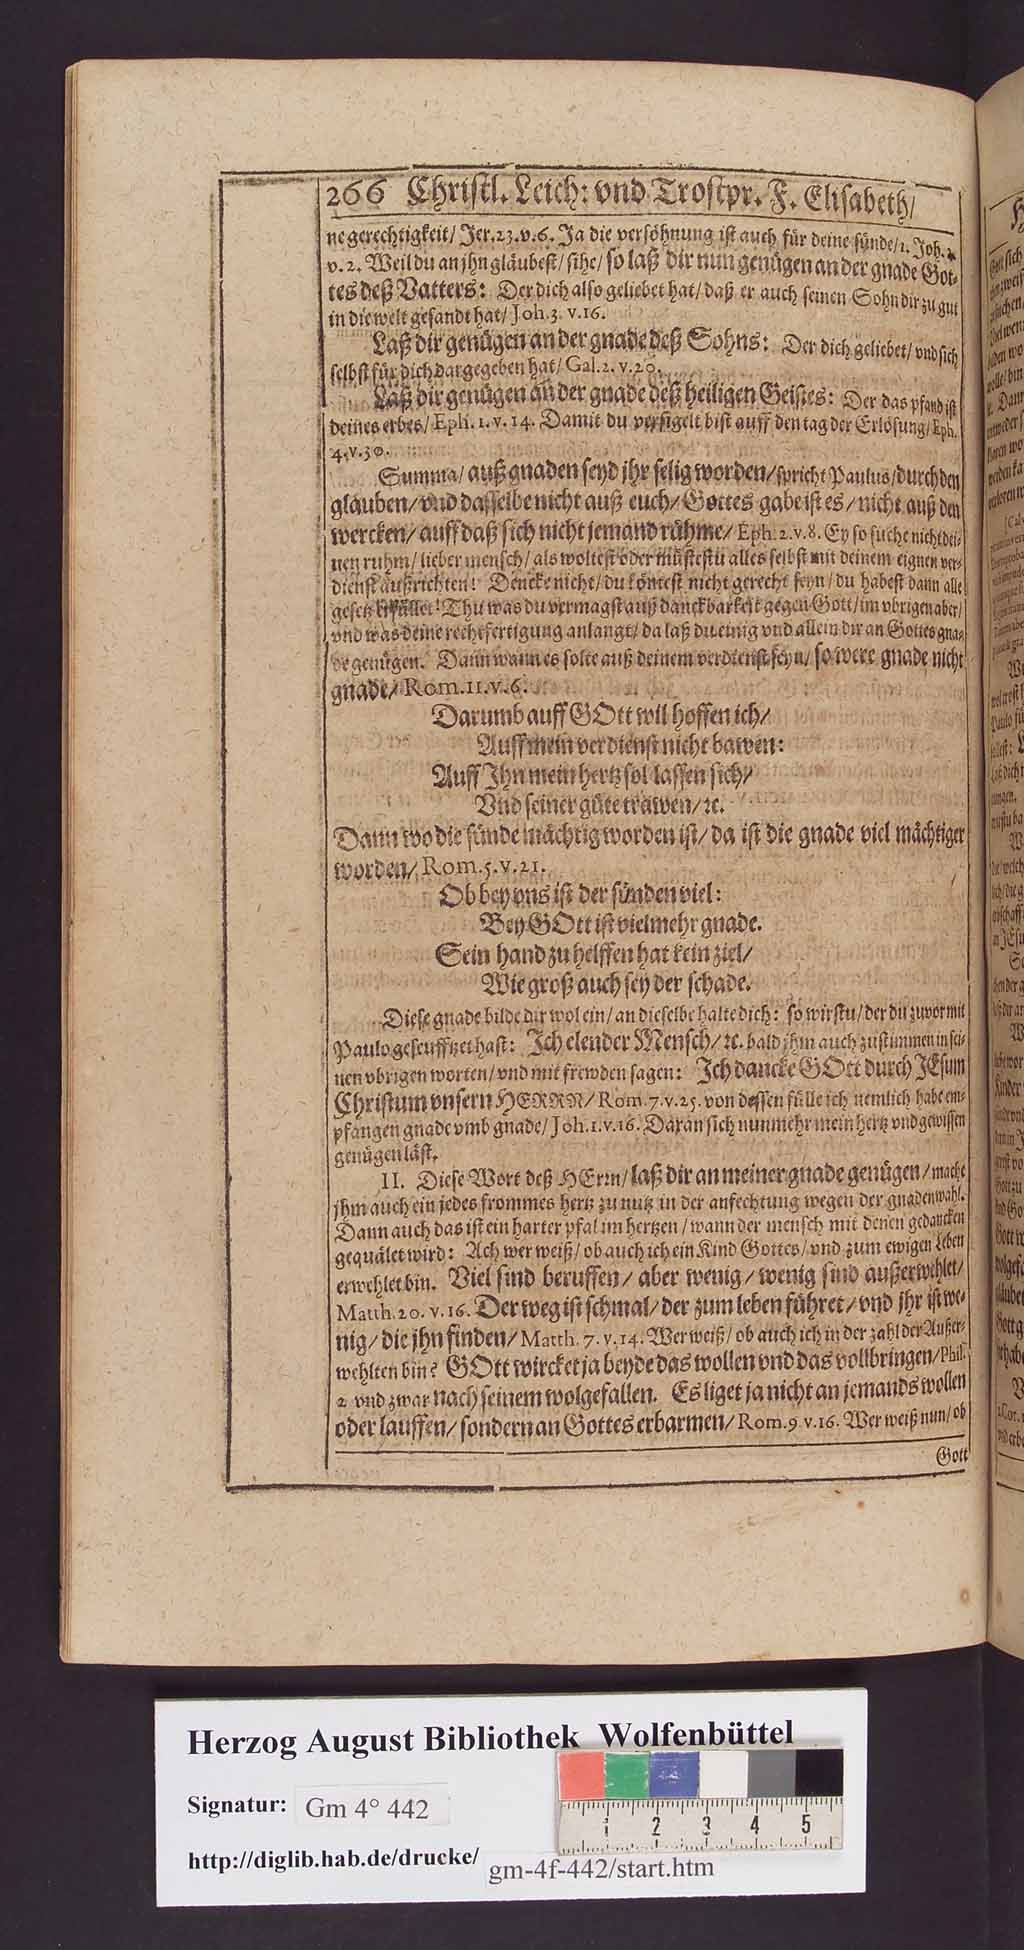 266 Christl. Leich: vnd Trostpr. F. Elisabeth/
ne gerechtigkeit/ Jer. 23. v. 6. Ja die versöhnung ist auch für deine sünde/ 1. Joh.
v. 2. Weil du an jhn gläubest/ sihe/ so laß dir nun genügen an der gnade Got-
tes deß Vatters: Der dich also geliebet hat/ daß er auch seinen Sohn dir zu gut
in die welt gesandt hat/ Joh. 3. v. 16.
Laß dir genügen an der gnade deß Sohns: Der dich geliebet/ vnd sich
selbst für dich dargegeben hat/ Gal. 2. v. 20.
Laß dir genügen an der gnade deß heiligen Geistes: Der das pfand ist
deines erbes/ Eph. 1. v. 14. Damit du versigelt bist auff den tag der Erlösung/ Eph.
4. v. 30.
Summa/ auß gnaden seyd jhr selig worden/ spricht Paulus/ durch den
glauben/ vnd dasselbe nicht auß euch/ Gottes gabe ist es/ nicht auß den
wercken/ auff daß sich nicht jemand rühme/ Eph. 2. v. 8. Ey so suche nicht dei-
nen ruhm/ lieber mensch/ als woltest oder müstestu alles selbst mit deinem eignen ver-
dienst außrichten! Dencke nicht/ du köntest nicht gerecht seyn/ du habest dann alle
gesetz erfüllet! Thu was du vermagst auß danckbarkeit gegen Gott/ im vbrigen aber/
vnd was deine rechtfertigung anlangt/ da laß du einig vnd allein dir an Gottes gna-
de genügen. Dann wann es solte auß deinem verdienst seyn/ so were gnade nicht
gnade/ Rom. 11. v. 6.
Darumb auff GOtt wil hoffen ich/
Auff mein verdienst nicht bawen:
Auff Jhn mein hertz sol lassen sich/
Vnd seiner güte trawen/ ꝛc.
Dann wo die sünde mächtig worden ist/ da ist die gnade viel mächtiger
worden/ Rom. 5. v. 21.
Ob bey vns ist der sünden viel:
Bey GOtt ist vielmehr gnade.
Sein hand zu helffen hat kein ziel/
Wie groß auch sey der schade.
Diese gnade bilde dir wol ein/ an dieselbe halte dich: so wirstu/ der du zuvor mit
Paulo geseufftzet hast: Ich elender Mensch/ ꝛc. bald jhm auch zustimmen in sei-
nen vbrigen worten/ vnd mit frewden sagen: Ich dancke GOtt durch JEsum
Christum vnsern HERRN/ Rom. 7. v. 25. von dessen fülle ich nemlich habe em-
pfangen gnade vmb gnade/ Joh. 1. v. 16. Daran sich nunmehr mein hertz vnd gewissen
genügen läst.
II. Diese Wort deß HErrn/ laß dir an meiner gnade genügen/ mache
jhm auch ein jedes frommes hertz zu nutz in der anfechtung wegen der gnadenwahl.
Dann auch das ist ein harter pfal im hertzen/ wann der mensch mit denen gedancken
gequälet wird: Ach wer weiß/ ob auch ich ein Kind Gottes/ vnd zum ewigen Leben
erwehlet bin. Viel sind beruffen/ aber wenig/ wenig sind außerwehlet/
Matth. 20. v. 16. Der weg ist schmal/ der zum leben führet/ vnd jhr ist we-
nig/ die jhn finden/ Matth. 7. v. 14. Wer weiß/ ob auch ich in der zahl der Außer-
wehlten bin? GOtt wircket ja beyde das wollen vnd das vollbringen/ Phil.
2. vnd zwar nach seinem wolgefallen. Es liget ja nicht an jemands wollen
oder lauffen/ sondern an Gottes erbarmen/ Rom. 9. v. 16. Wer weiß nun/ ob
Gott
Herzog August Bibliothek Wolfenbüttel
Signatur: Gm 4° 442
1 2 3 4 5
http://diglib.hab.de/drucke/ gm-4f-442/start.htm